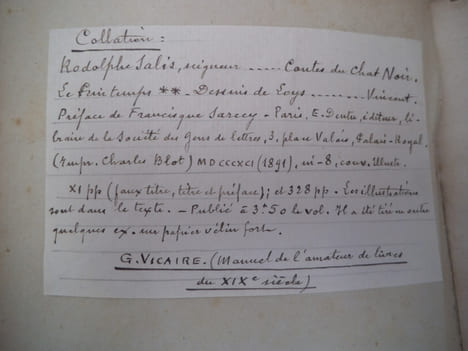 Collation :
Rodolphe Salis, seigneur ---- Contes du Chat Noir.
Le Printemps ** - Dessins de Loys ------ Vincent.
Préface de Francisque Sarcey - Paris, E. Dentu, éditeur, li-
braire de la Société des Gens de lettres, 3, place Valois, Palais-Royal.
(Impr. Charles Blot) MDCCCXCI (1891), in-8, couv. illustr.
XI pp (faux titre, titre et préface); et 328 pp - Les illustrations
sont dans le texte. - Publié à 3f.50 le vol. Il a été tiré en outre
quelques ex. sur papier vélin fort.
G. VICAIRE. (Manuel de l'amateur de livres
du XIXe siècle)